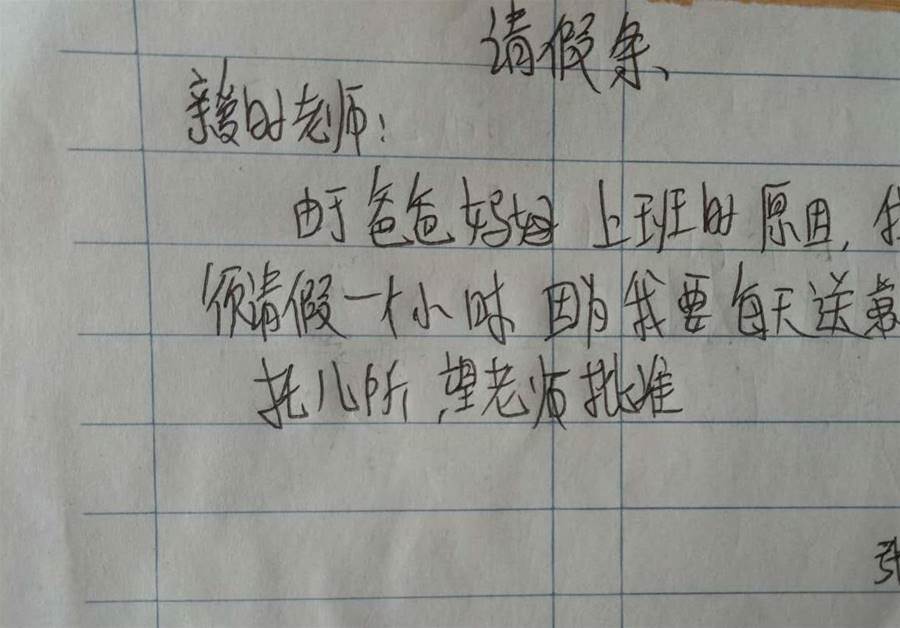 请假条、
亲爱的老师:
由于爸爸妈妈上班的原因,
须请假一个小时 因为我要每天送
托儿所,望老师批准
张